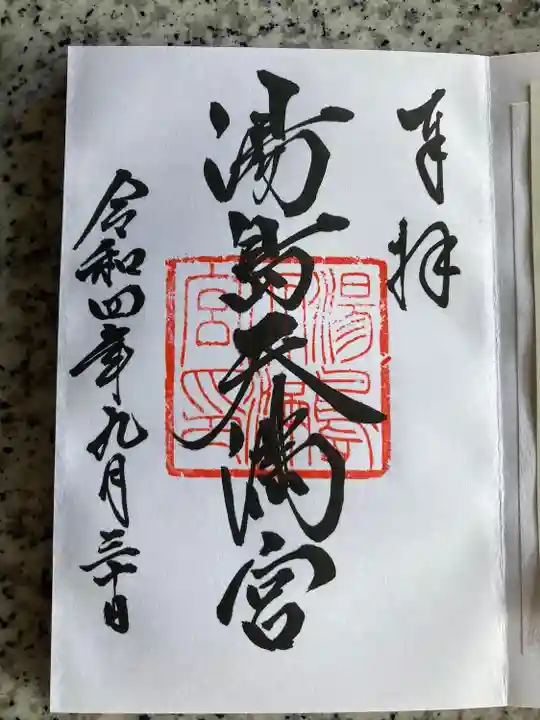 奉拝
湯島天満宮
湯島天満宮印
令和四年九月三十日